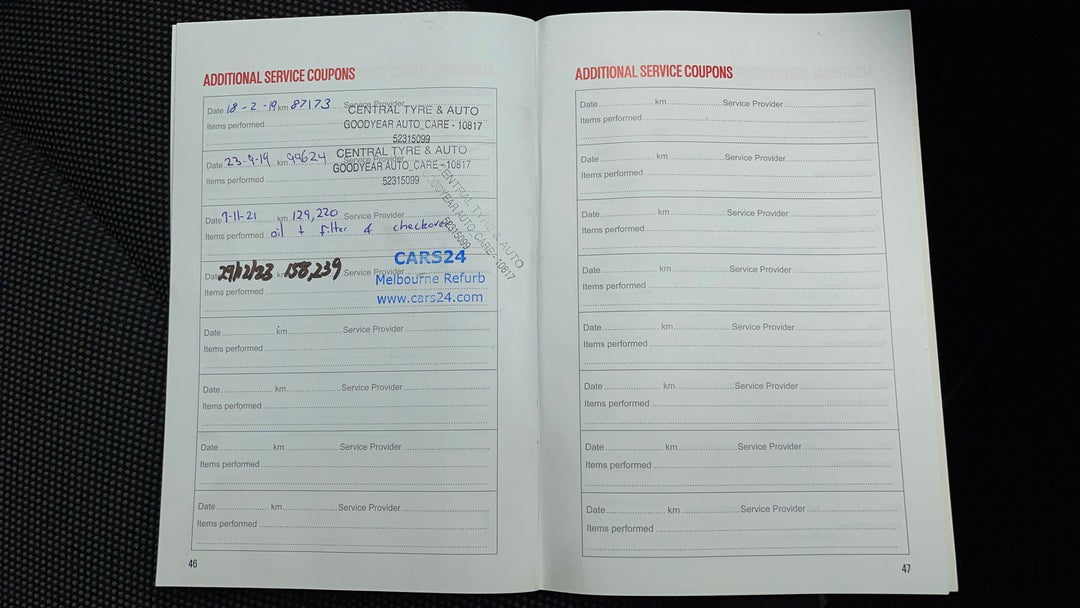 ADDITIONAL SERVICE COUPONS
Date 18-2-19 km 87173 Service Provider
CENTRAL TYRE & AUTO
Items performed
GOODYEAR AUTO CARE - 10817
52315099
CENTRAL TYRE & AUTO
Date 23-9-19 km 99624 Service Provider
GOODYEAR AUTO CARE - 10817
Items performed
52315099
CENTRAL TYRE & AUTO
GOODYEAR AUTO CARE - 10817
52315099
Date 7-11-21 km 129,220 Service Provider
Items performed oil + filter & checkover
CARS24
Date 29/12/23 158,239 Service Provider
Melbourne Refurb
Items performed
www.cars24.com
Date km Service Provider
Items performed
Date km Service Provider
Items performed
Date km Service Provider
Items performed
Date km Service Provider
Items performed
46
ADDITIONAL SERVICE COUPONS
Date km Service Provider
Items performed
Date km Service Provider
Items performed
Date km Service Provider
Items performed
Date km Service Provider
Items performed
Date km Service Provider
Items performed
Date km Service Provider
Items performed
Date km Service Provider
Items performed
Date km Service Provider
Items performed
47